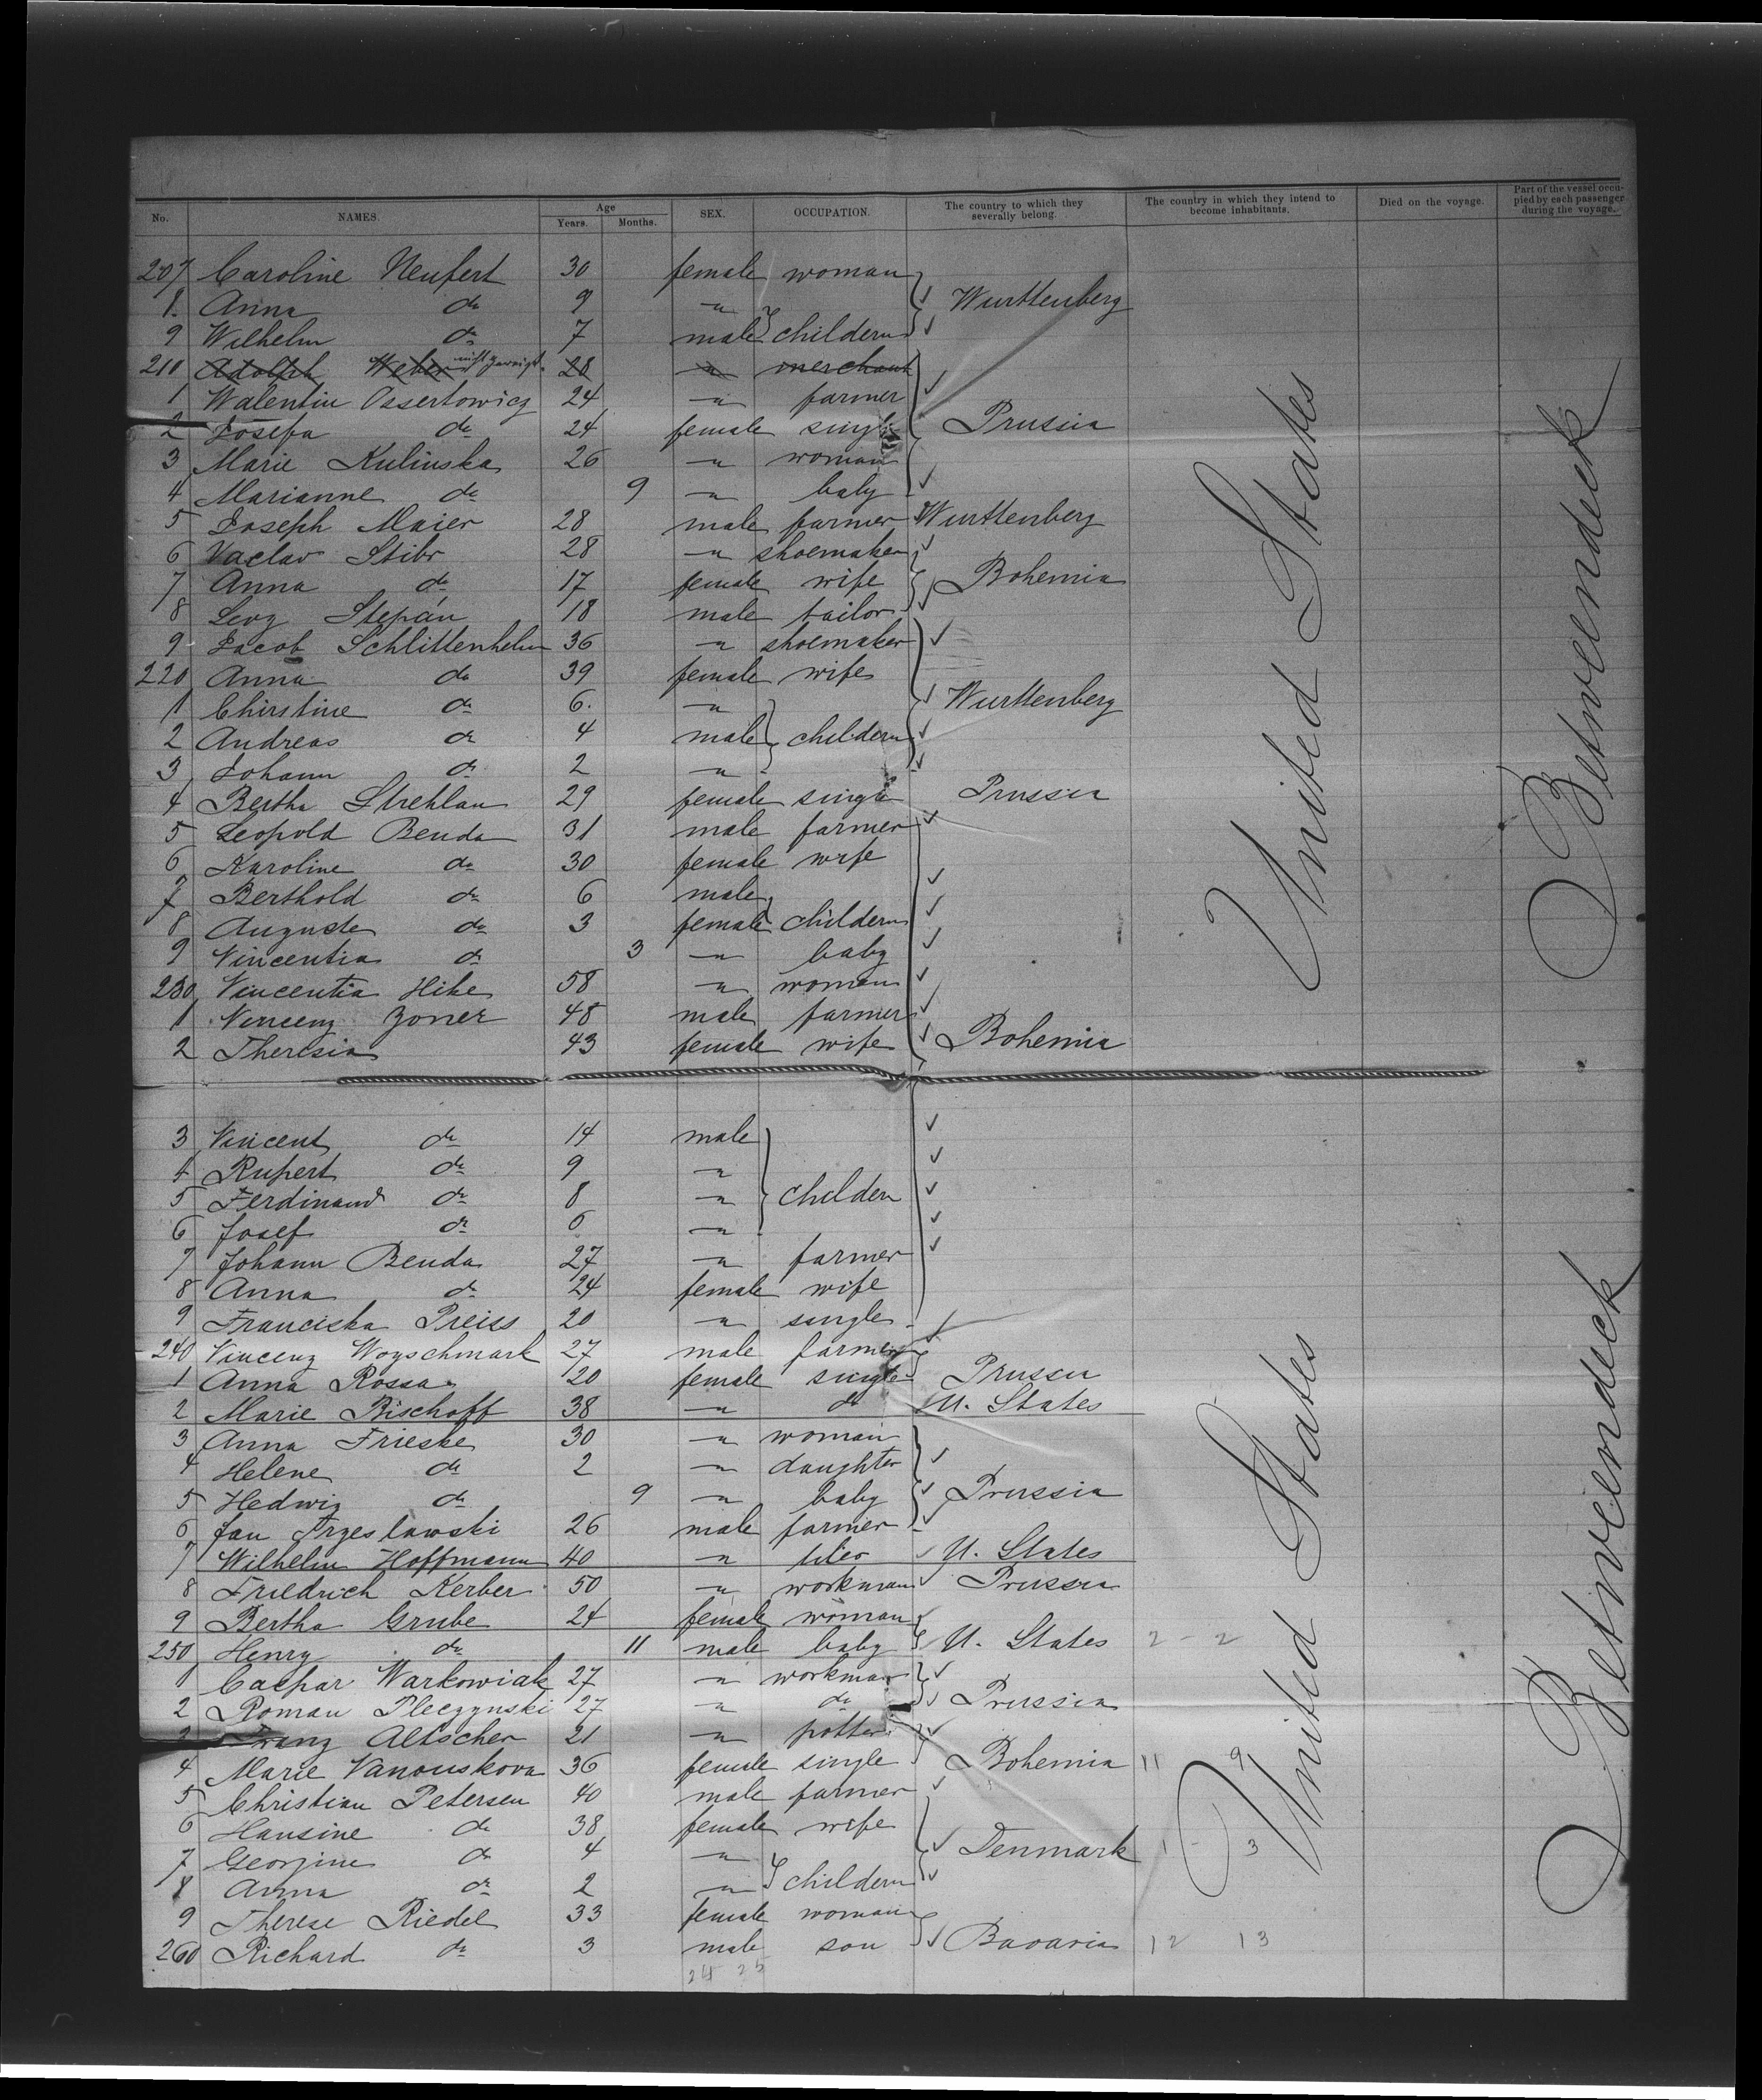 No. NAMES. Age Years. Months. SEX. OCCUPATION. The country to which they severally belong. The country in which they intend to become inhabitants. Died on the voyage. Part of the vessel occupied by each passenger during the voyage.
207 Caroline Neufert 30 female woman
8 Anna do 9 " Wurttenberg
9 Wilhelm do 7 male childern
210 Adolph Weber 28 " merchant
1 Walentin Ossertowicz 24 " farmer
2 Josefa do 24 female single Prussia
3 Marie Kulinska 26 " woman
4 Marianne do 9 " baby
5 Joseph Maier 28 male farmer Wurttenberg
6 Vaclav Stibr 28 " shoemaker
7 Anna do 17 female wife Bohemia
8 Levz Stepán 18 male tailor
9 Jacob Schlittenhelm 36 " shoemaker
220 Anna do 39 female wife
1 Chirstine do 6. " Wurttenberg
2 Andreas do 4 male childern
3 Johann do 2 "
4 Bertha Strehlau 29 female single Prussia
5 Leopold Benda 31 male farmer
6 Karoline do 30 female wife
7 Berthold do 6 male
8 Auguste do 3 female childern
9 Vincentia do 3 " baby
230 Vincentia Hike 58 " woman
1 Vincenz Zoner 48 male farmer
2 Theresia 43 female wife Bohemia
3 Vincent do 14 male
4 Rupert do 9 "
5 Ferdinand do 8 " childen
6 Josef do 6 "
7 Johann Benda 27 " farmer
8 Anna do 24 female wife
9 Franciska Preiss 20 " single
240 Vincenz Woyschmark 27 male farmer
1 Anna Rossa 20 female single Prussia
2 Marie Bischoff 38 " do U. States
3 Anna Frieske 30 " woman
4 Helene do 2 " daughter
5 Hedwig do 9 " baby Prussia
6 Jan Trzeslawski 26 male farmer
7 Wilhelm Hoffmann 40 " U. States
8 Friedrich Kerber 50 " workman Prussia
9 Bertha Grube 24 female woman
250 Henry do 11 male baby U. States 2 - 2
1 Caspar Warkowiak 27 " workman
2 Roman Pleczynski 27 " do Prussia
3 Franz Altscher 21 " potter
4 Marie Vanouskova 36 female single Bohemia 11 9
5 Christian Petersen 40 male farmer
6 Hansine do 38 female wife
7 Georgine do 4 " Denmark 1 - 3
8 Anna do 2 " childern
9 Therese Riedel 33 female woman
260 Richard do 3 male son Bavaria 12 13
24 25
United States
Zwischendeck
United States
Zwischendeck